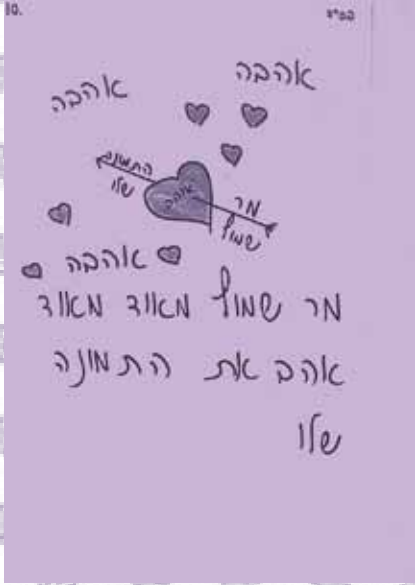 10.
בס״ד
אהבה
אהבה
התמונה
שלו
אהב
מר
שמוץ
אהבה
מר שמוץ מאוד מאוד
אהב את התמונה
שלו